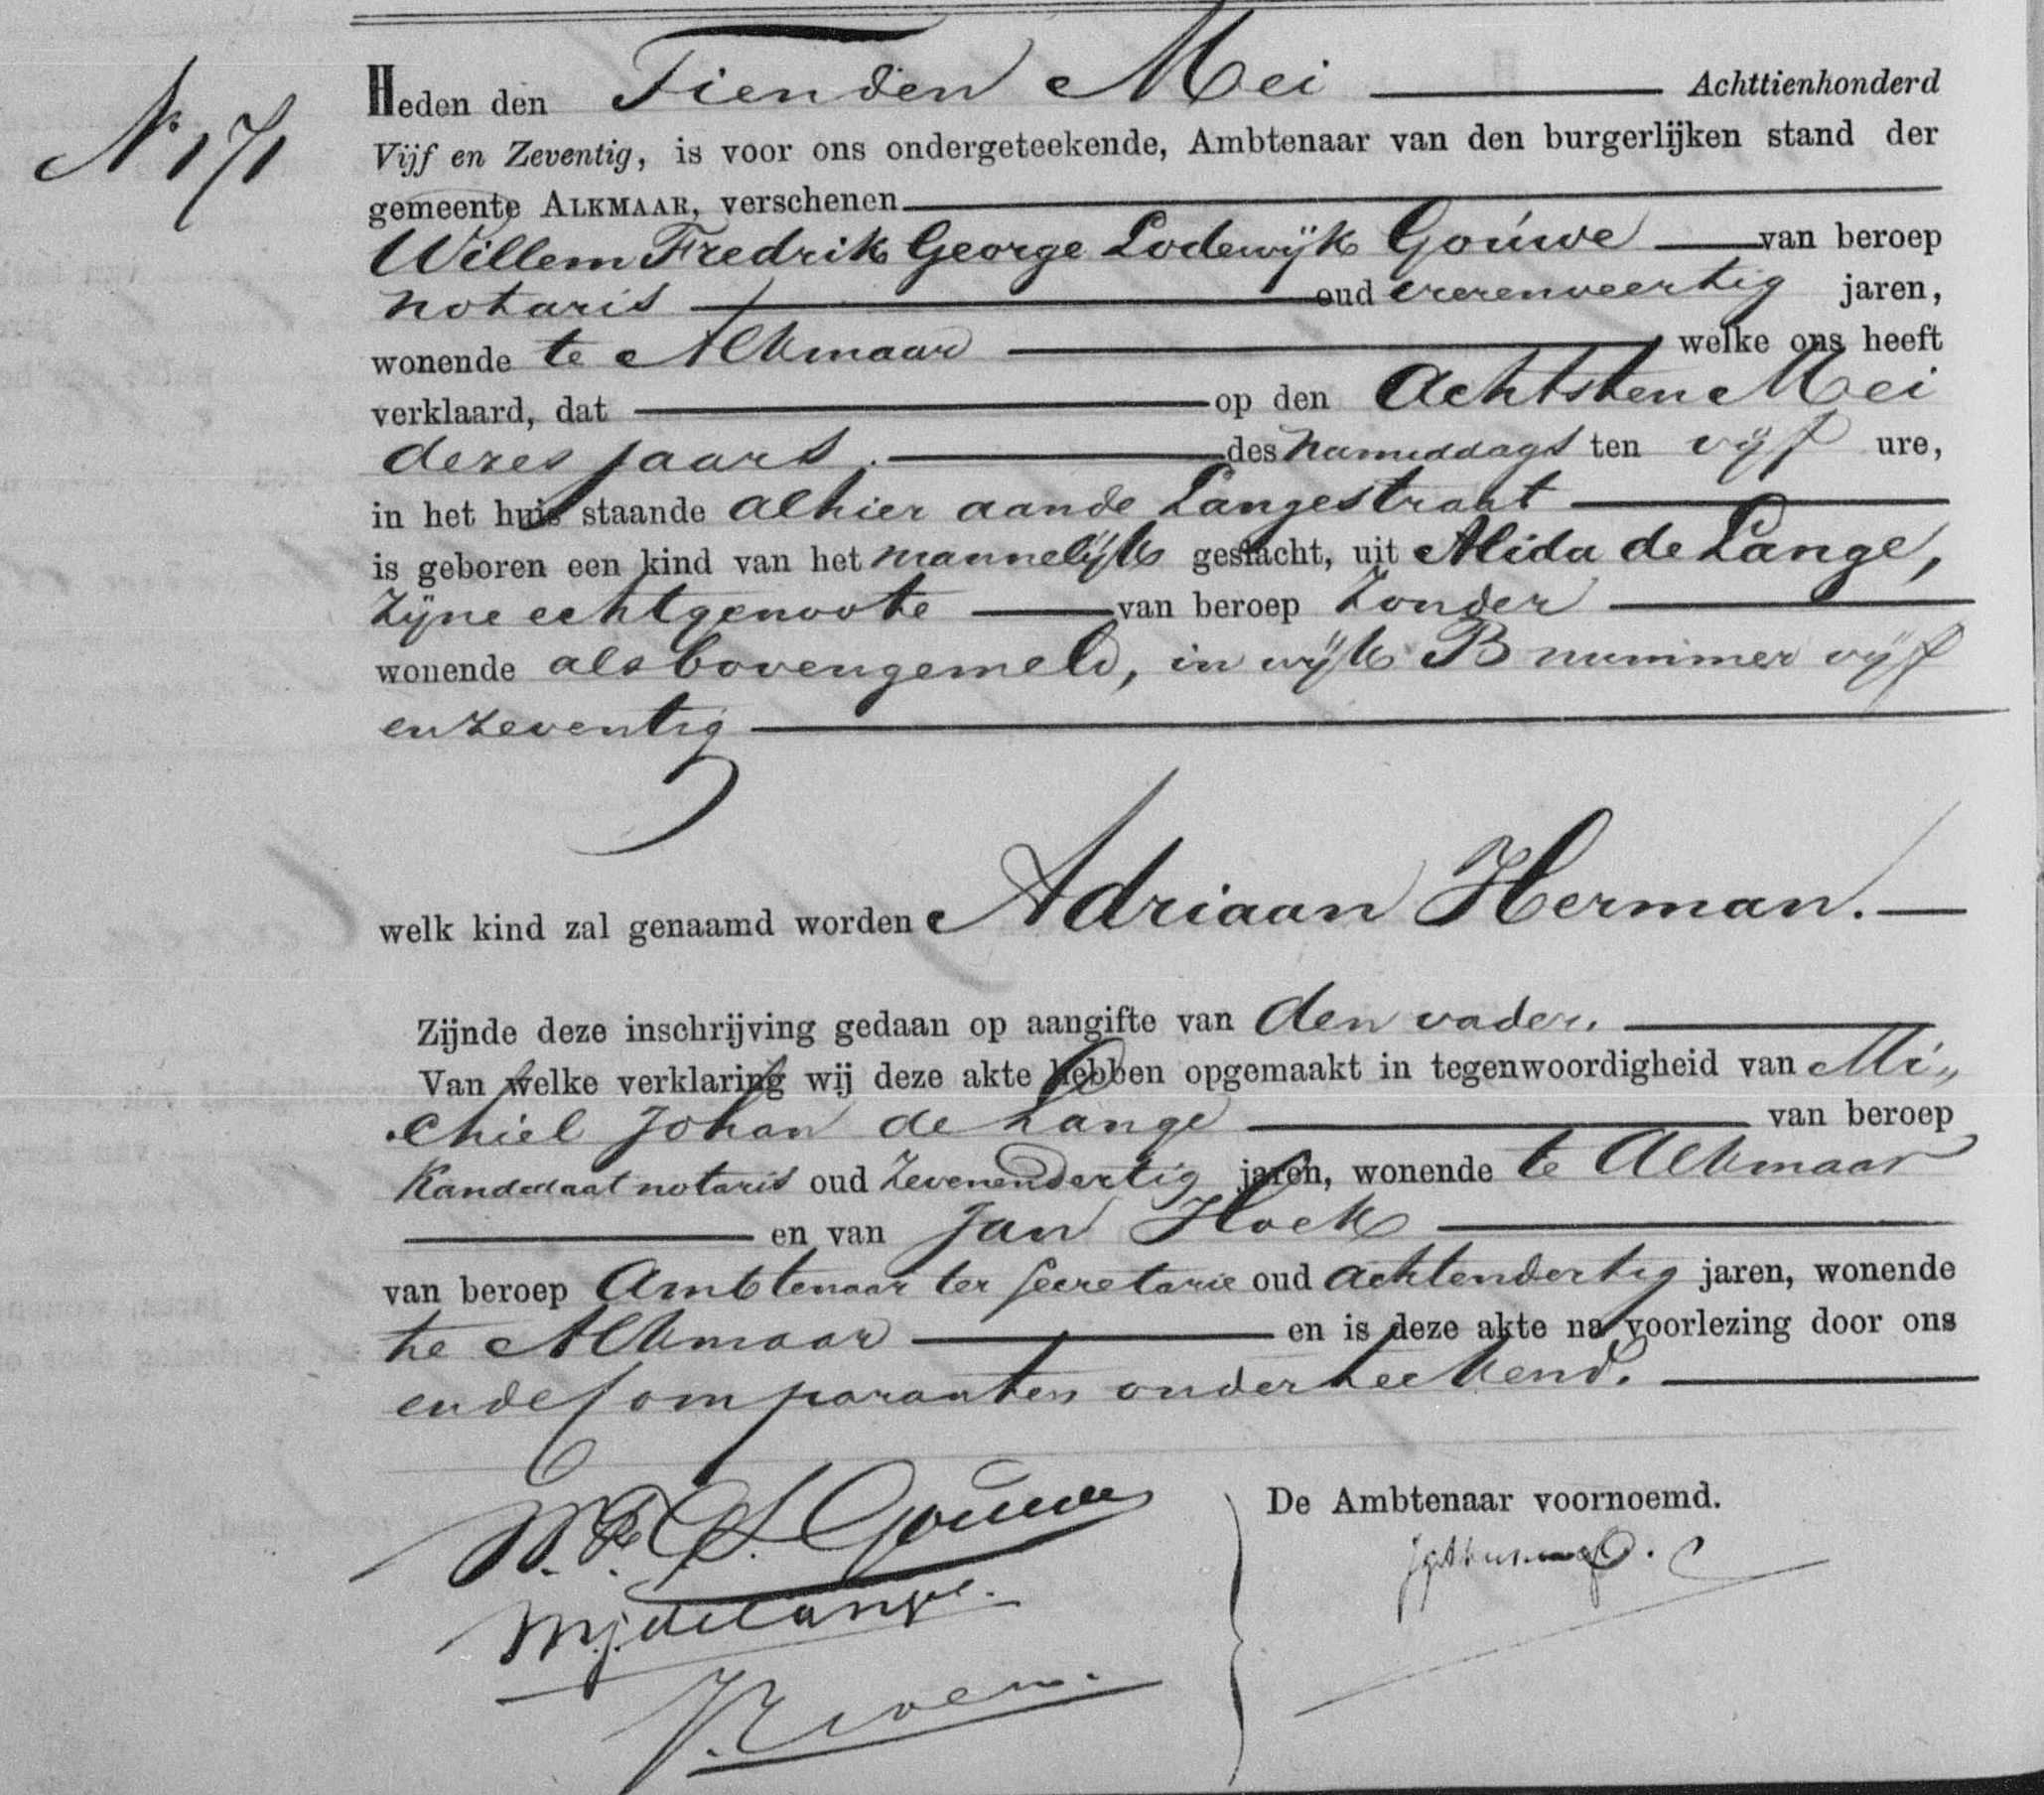 No 171
Heden den Tienden Mei Achttienhonderd
Vijf en Zeventig, is voor ons ondergeteekende, Ambtenaar van den burgerlijken stand der
gemeente ALKMAAR, verschenen
Willem Fredrik George Lodewijk Gouwe van beroep
notaris oud vierenveertig jaren,
wonende te Alkmaar welke ons heeft
verklaard, dat op den Achtsten Mei
dezes jaars. des namiddags ten vijf ure,
in het huis staande alhier aan de Langestraat
is geboren een kind van het mannelijk geslacht, uit Alida de Lange,
zijne echtgenoote van beroep zonder
wonende als bovengemeld, in wijk B nummer vijf
en zeventig
welk kind zal genaamd worden Adriaan Herman.
Zijnde deze inschrijving gedaan op aangifte van den vader.
Van welke verklaring wij deze akte hebben opgemaakt in tegenwoordigheid van Mi„
chiel Johan de Lange van beroep
Kandidaat notaris oud zevenendertig jaren, wonende te Alkmaar
en van Jan Hoek
van beroep Ambtenaar ter Secretarie oud achtendertig jaren, wonende
te Alkmaar en is deze akte na voorlezing door ons
en de Comparanten onderteekend.
W. F. G. L. Gouwe
De Ambtenaar voornoemd.
M.J. de Lange.